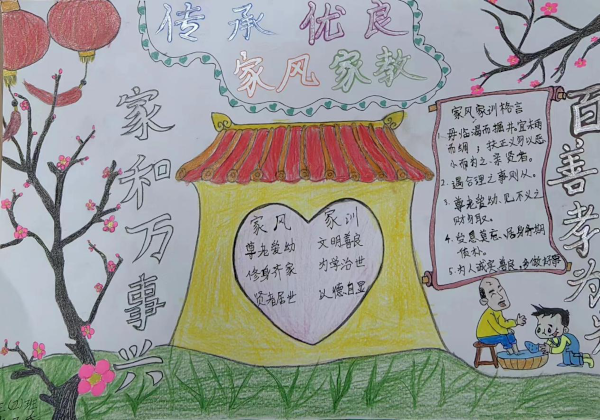 传承 优良
家风家教
家和万事兴
百善孝为先
家风 家训
尊老爱幼 文明善良
修身齐家 为学治世
贤者居世 以德自显
家风家训格言
1. 毋临渴而掘井,宜未雨
而绸
扶正义
2. 遇合理之事则从。
3. 尊老爱幼,见不义之
财勿取。
4. 施惠莫念,
5. 为人诚实善良,多做好事